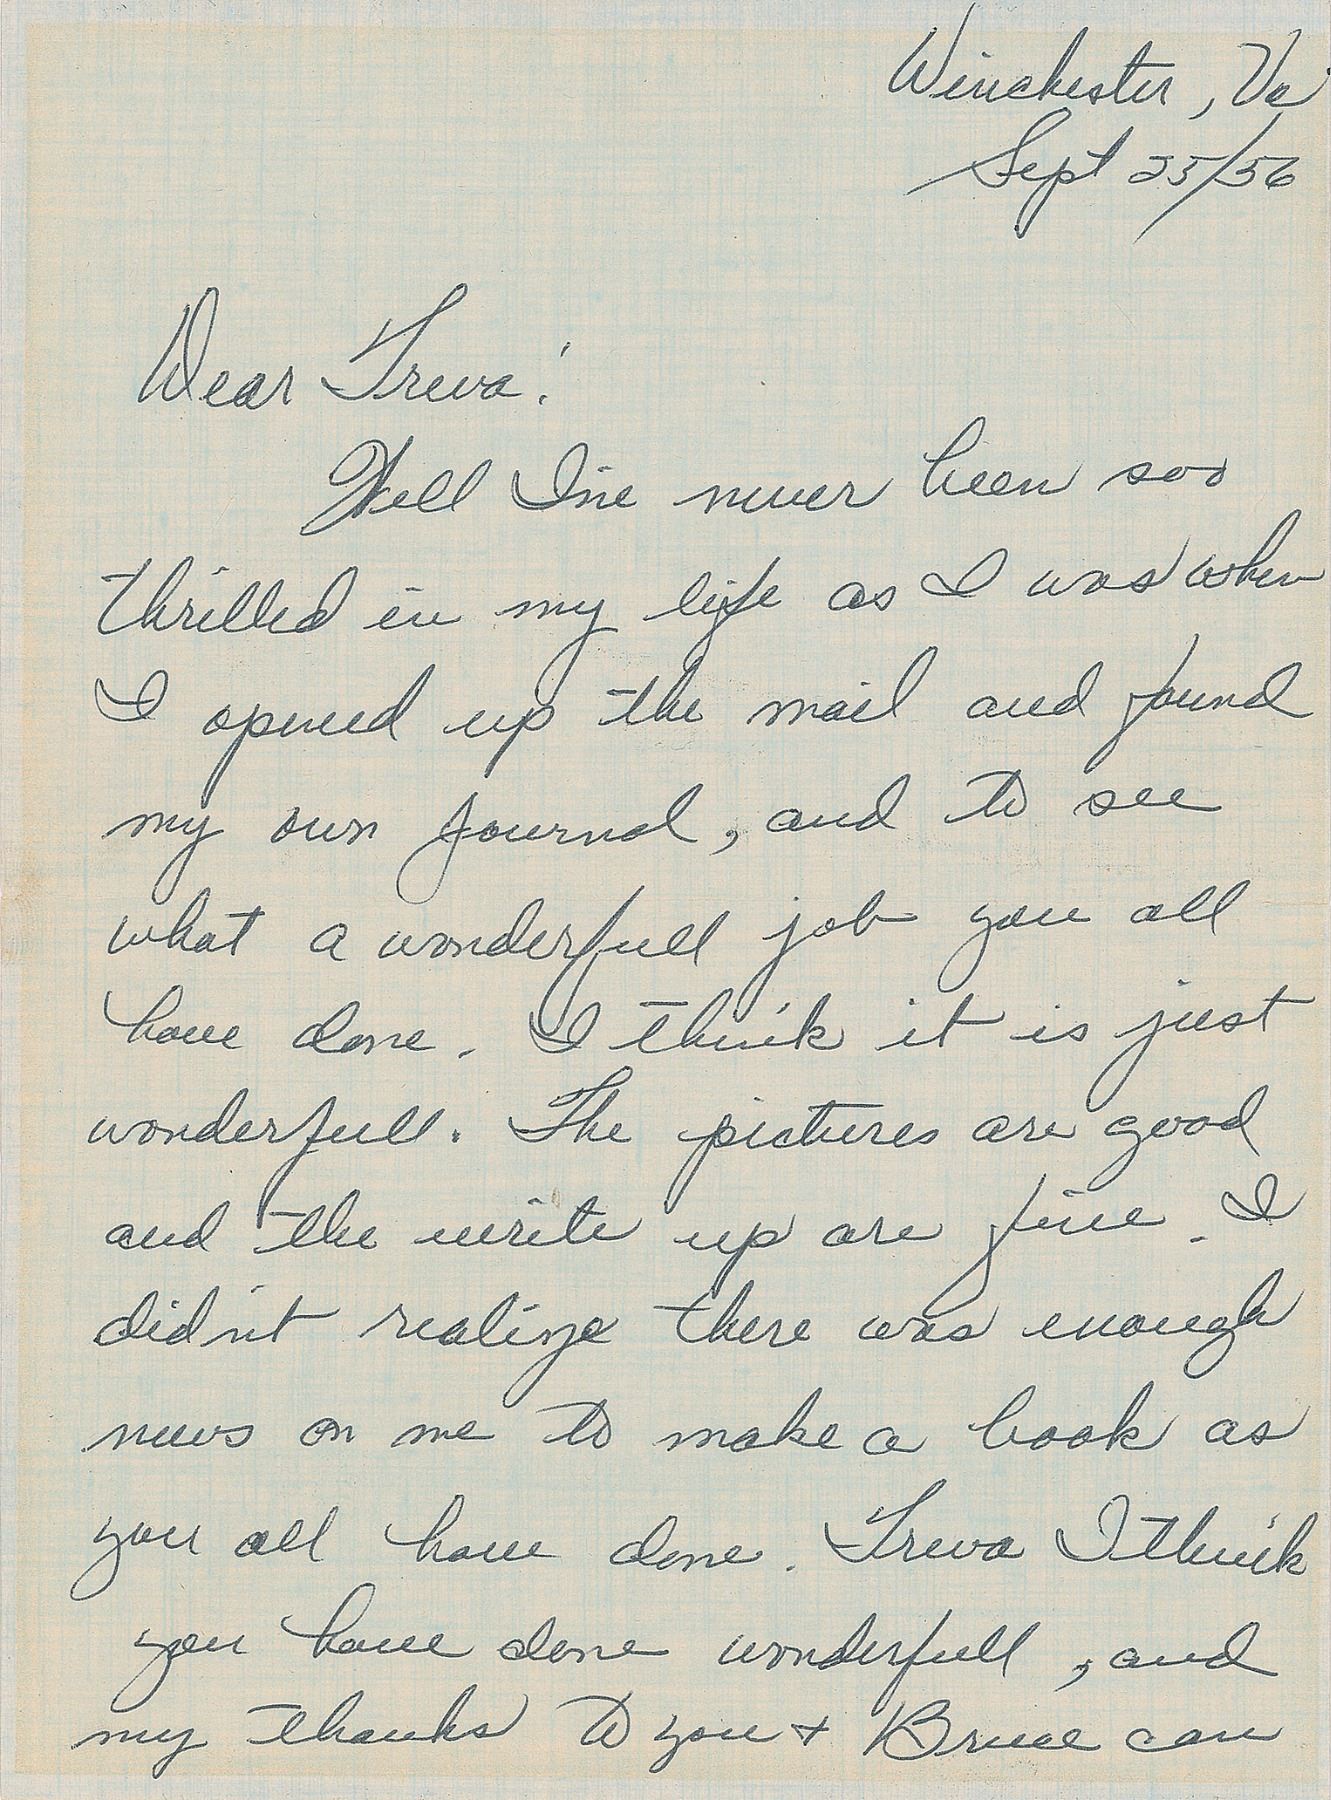 Winchester, Va
Sept 25/56
Dear Treva!
Well I've never been soo
thrilled in my life as I was when
I opened up the mail and found
my own Journal, and to see
what a wonderfull job you all
have done. I think it is just
wonderfull. The pictures are good
and the write up are fine. I
did'nt realize there was enough
news on me to make a book as
you all have done. Treva I think
you have done wonderfull, and
my thanks to you + Bruce can